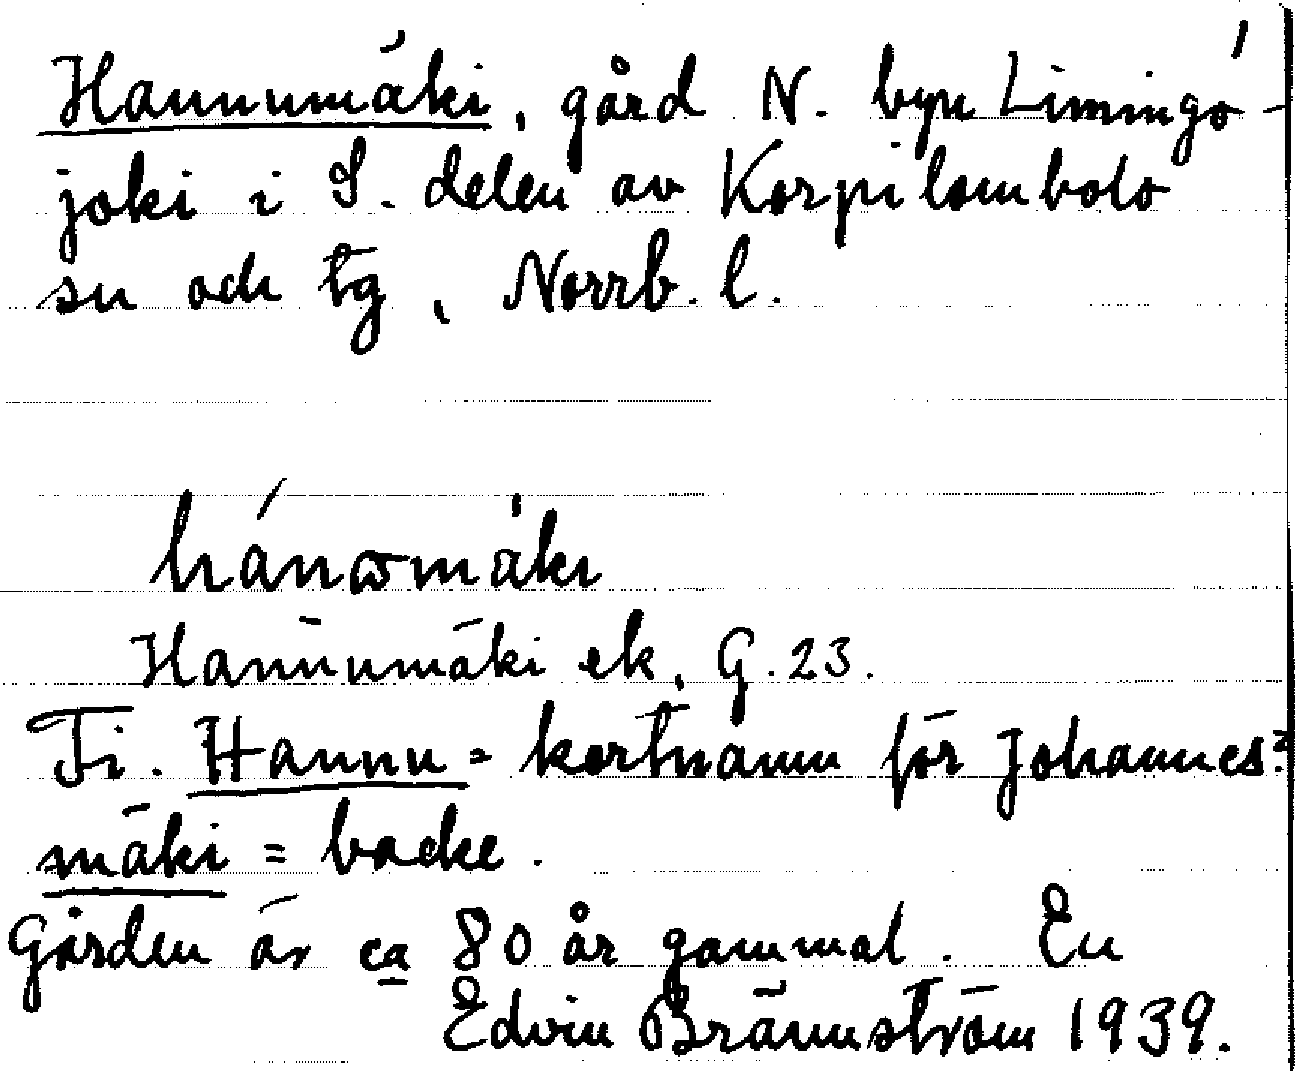 Hannumäki, gård N. byn Limingo-
joki i S. delen av Korpilombolo
sn och tg, Norrb. l.
hánɷmäki
Hannumäki ek. G. 23.
Fi. Hannu = kortnamn för Johannes?
mäki = backe.
Gården är ca 80 år gammal. En
Edvin Brännström 1939.